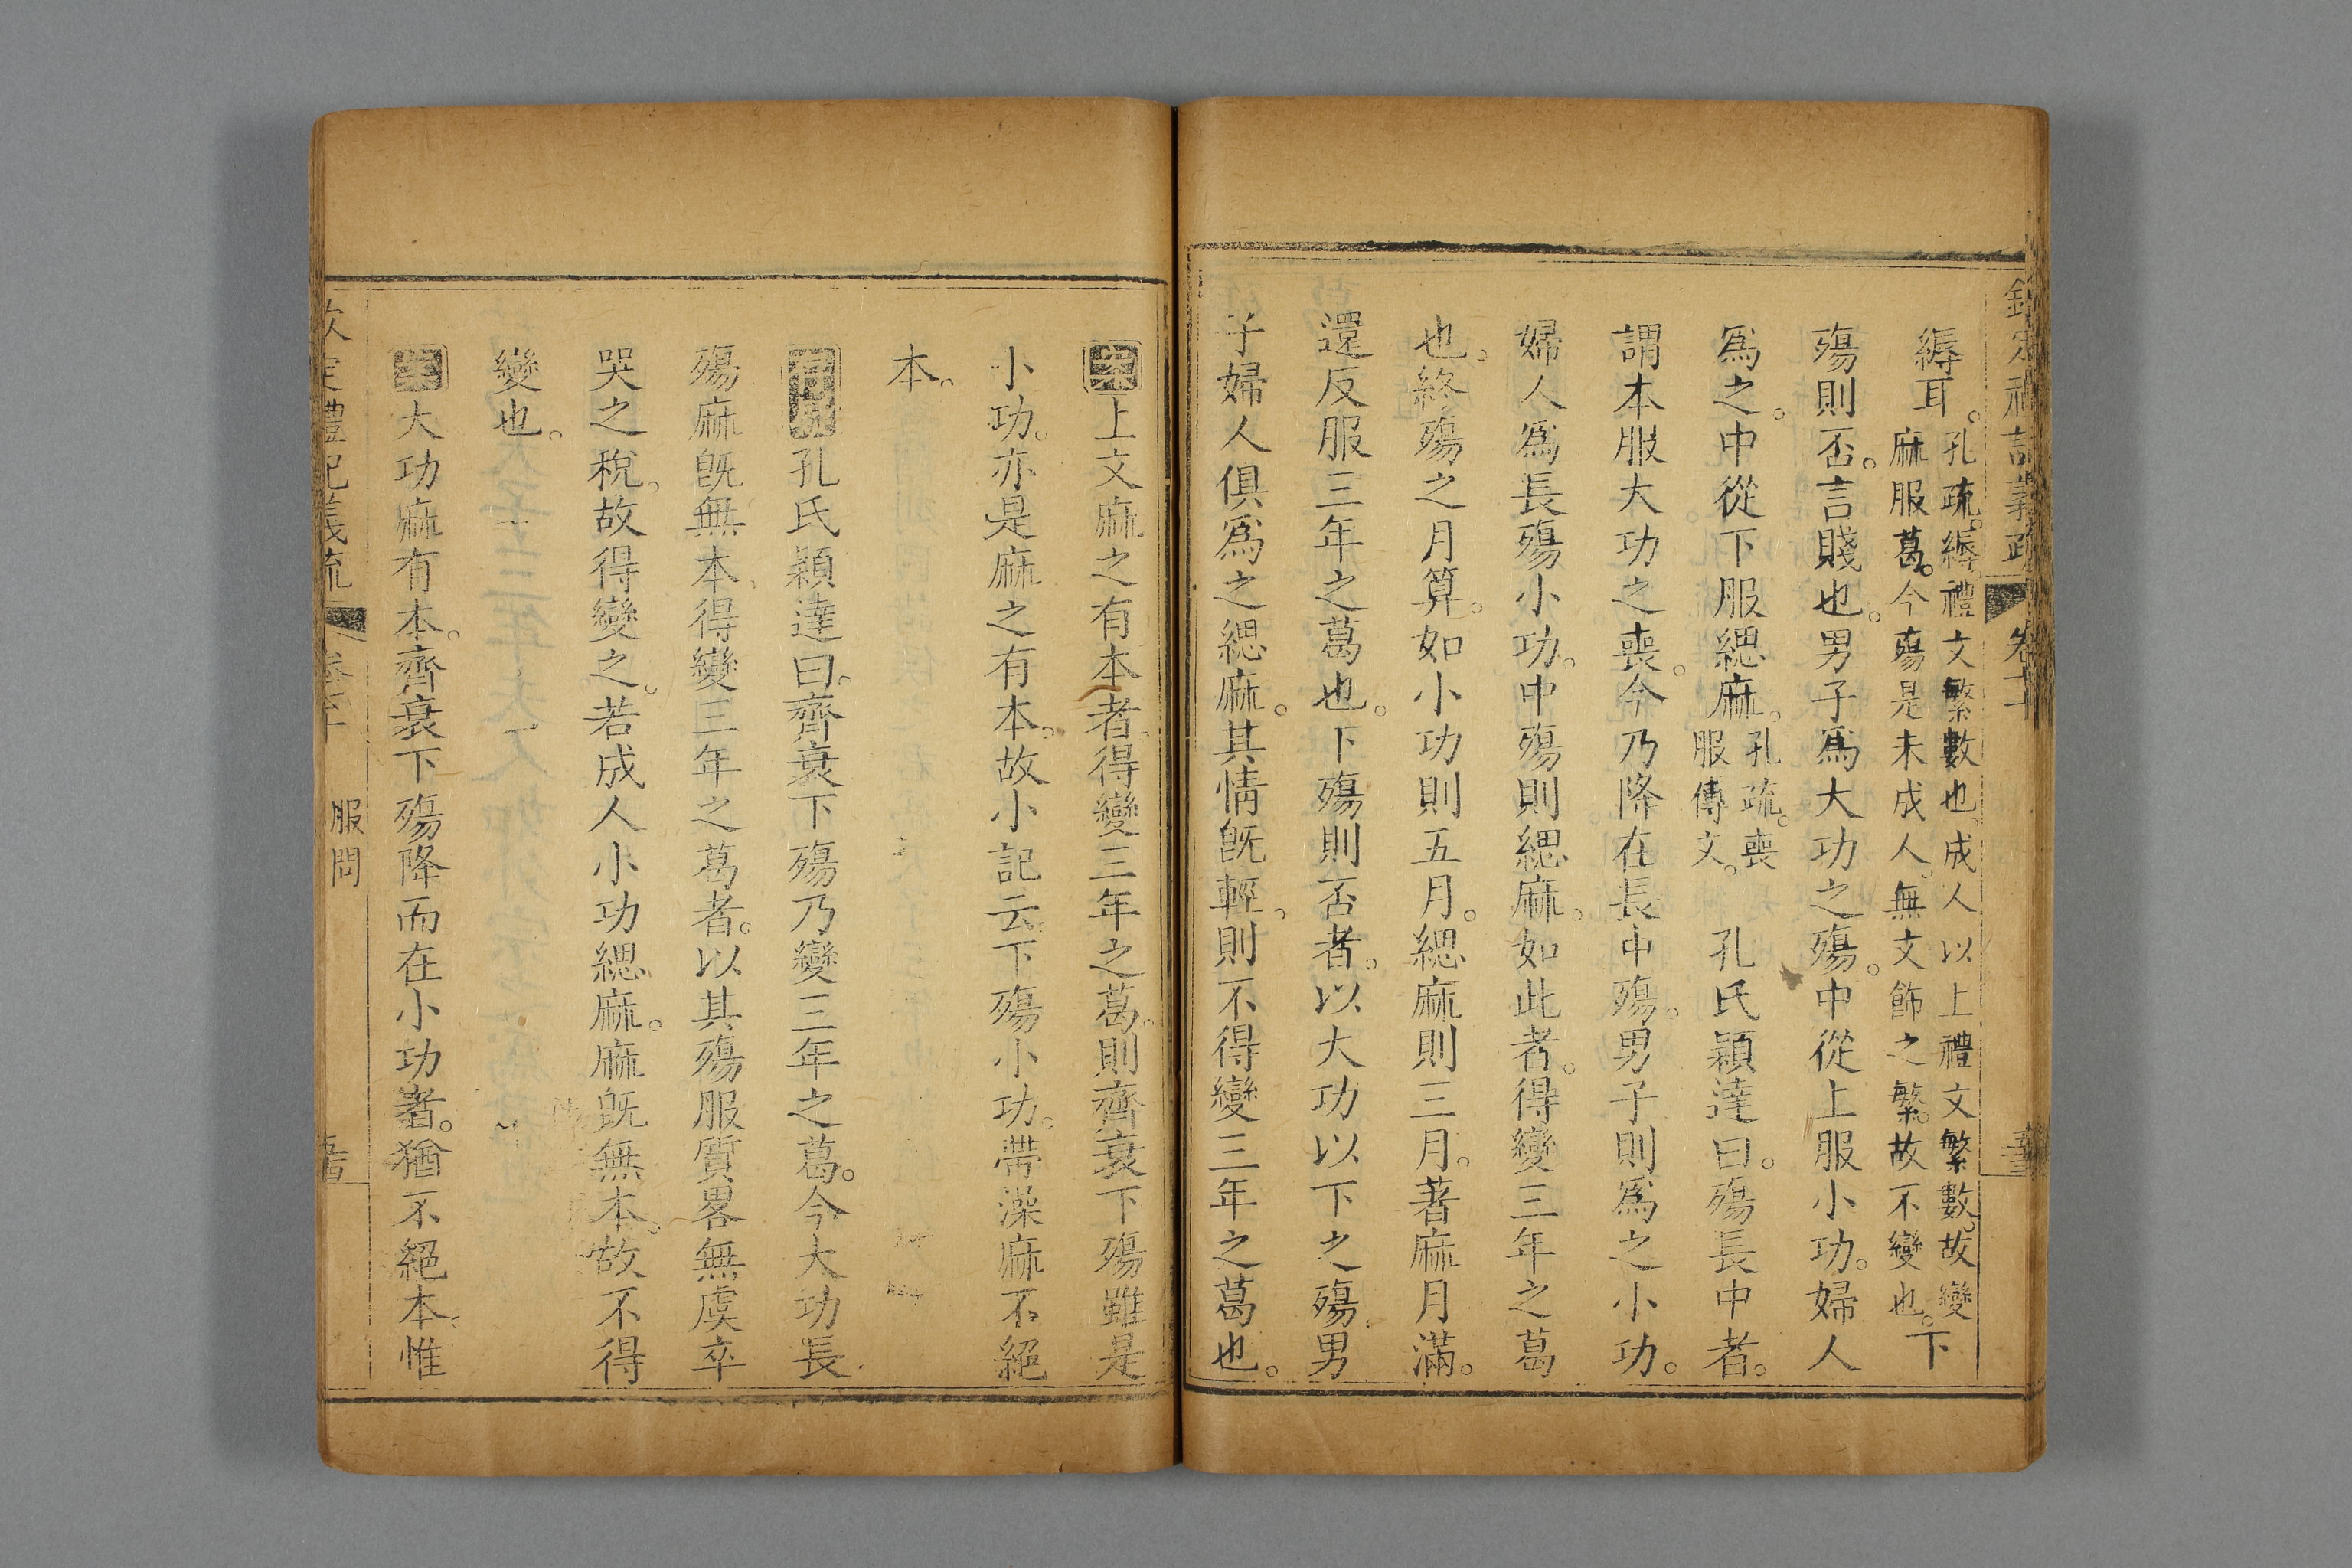 欽定禮記義疏 卷
縟耳。孔疏。縟。禮文繁數也。成人以上禮文繁數。故變
麻服葛。今殤是未成人。無文飾之繁。故不變也。下
殤則否。言賤也。男子爲大功之殤。中從上服小功。婦人
爲之。中從下服緦麻。孔疏。喪
服傳文。孔氏穎達曰。殤長中者。
謂本服大功之喪。今乃降在長中殤。男子則爲之小功。
婦人爲長殤小功。中殤則緦麻。如此者。得變三年之葛
也。終殤之月算。如小功則五月。緦麻則三月。著麻月滿。
還反服三年之葛也。下殤則否者。以大功以下之殤。男
子婦人俱爲之緦麻。其情旣輕。則不得變三年之葛也。
案上文麻之有本者。得變三年之葛。則齊衰下殤雖是
小功。亦是麻之有本。故小記云。下殤小功。帶澡麻不絕
本。
孔氏穎達曰。齊衰下殤乃變三年之葛。今大功長
殤麻旣無本。得變三年之葛者。以其殤服質畧無虞卒
哭之稅。故得變之。若成人小功緦麻。麻旣無本。故不得
變也。
案大功麻有本。齊衰下殤降而在小功者。猶不絕本。惟
欽定禮記義疏 服問